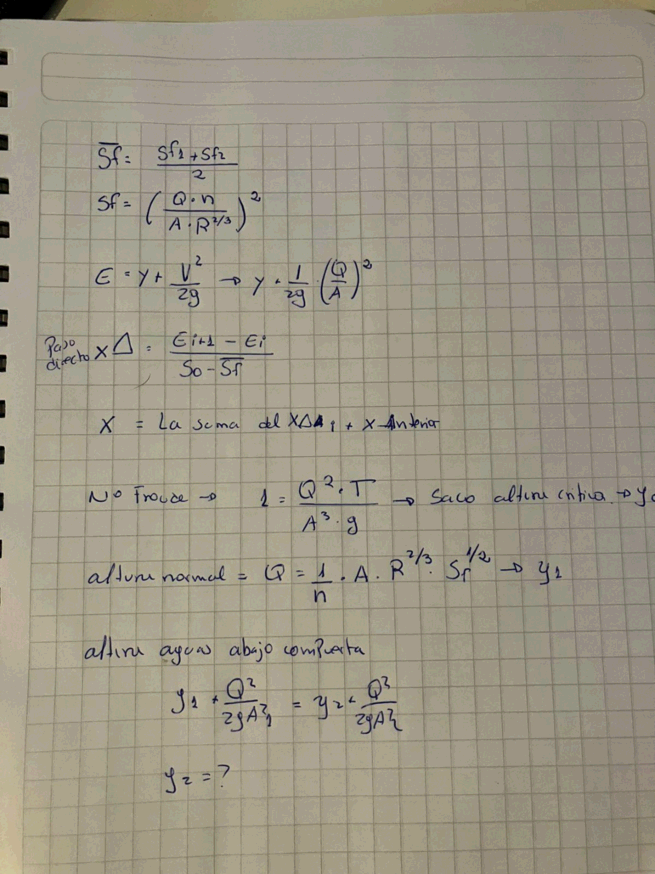 S̅f = (Sf1 + Sf2) / 2
Sf = (Q·n / A·R^2/3)^2
E = y + V^2 / 2g → y + 1/2g · (Q/A)^2
Paso directo XΔ = (Ei+1 − Ei) / (So − S̅f)
X = La suma del XΔ1 + X Anterior
Nº Froude → 1 = Q^2·T / A^3·g → Saco altura critica → yc
altura normal = Q = 1/n · A · R^2/3 · Sf^1/2 → y1
altura aguas abajo compuerta
y1 + Q^2 / 2gA^2 1 = y2 + Q^2 / 2gA^2 2
y2 = ?